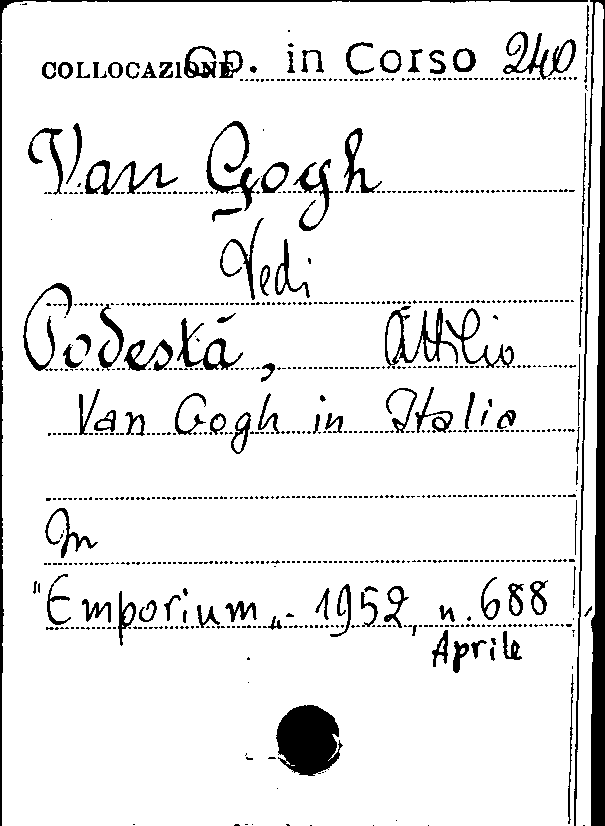 COLLOCAZIONE Op. in Corso 240
Van Gogh
Vedi
Podestà, Attilio
Van Gogh in Italia
In
"Emporium„ - 1952, n. 688
Aprile